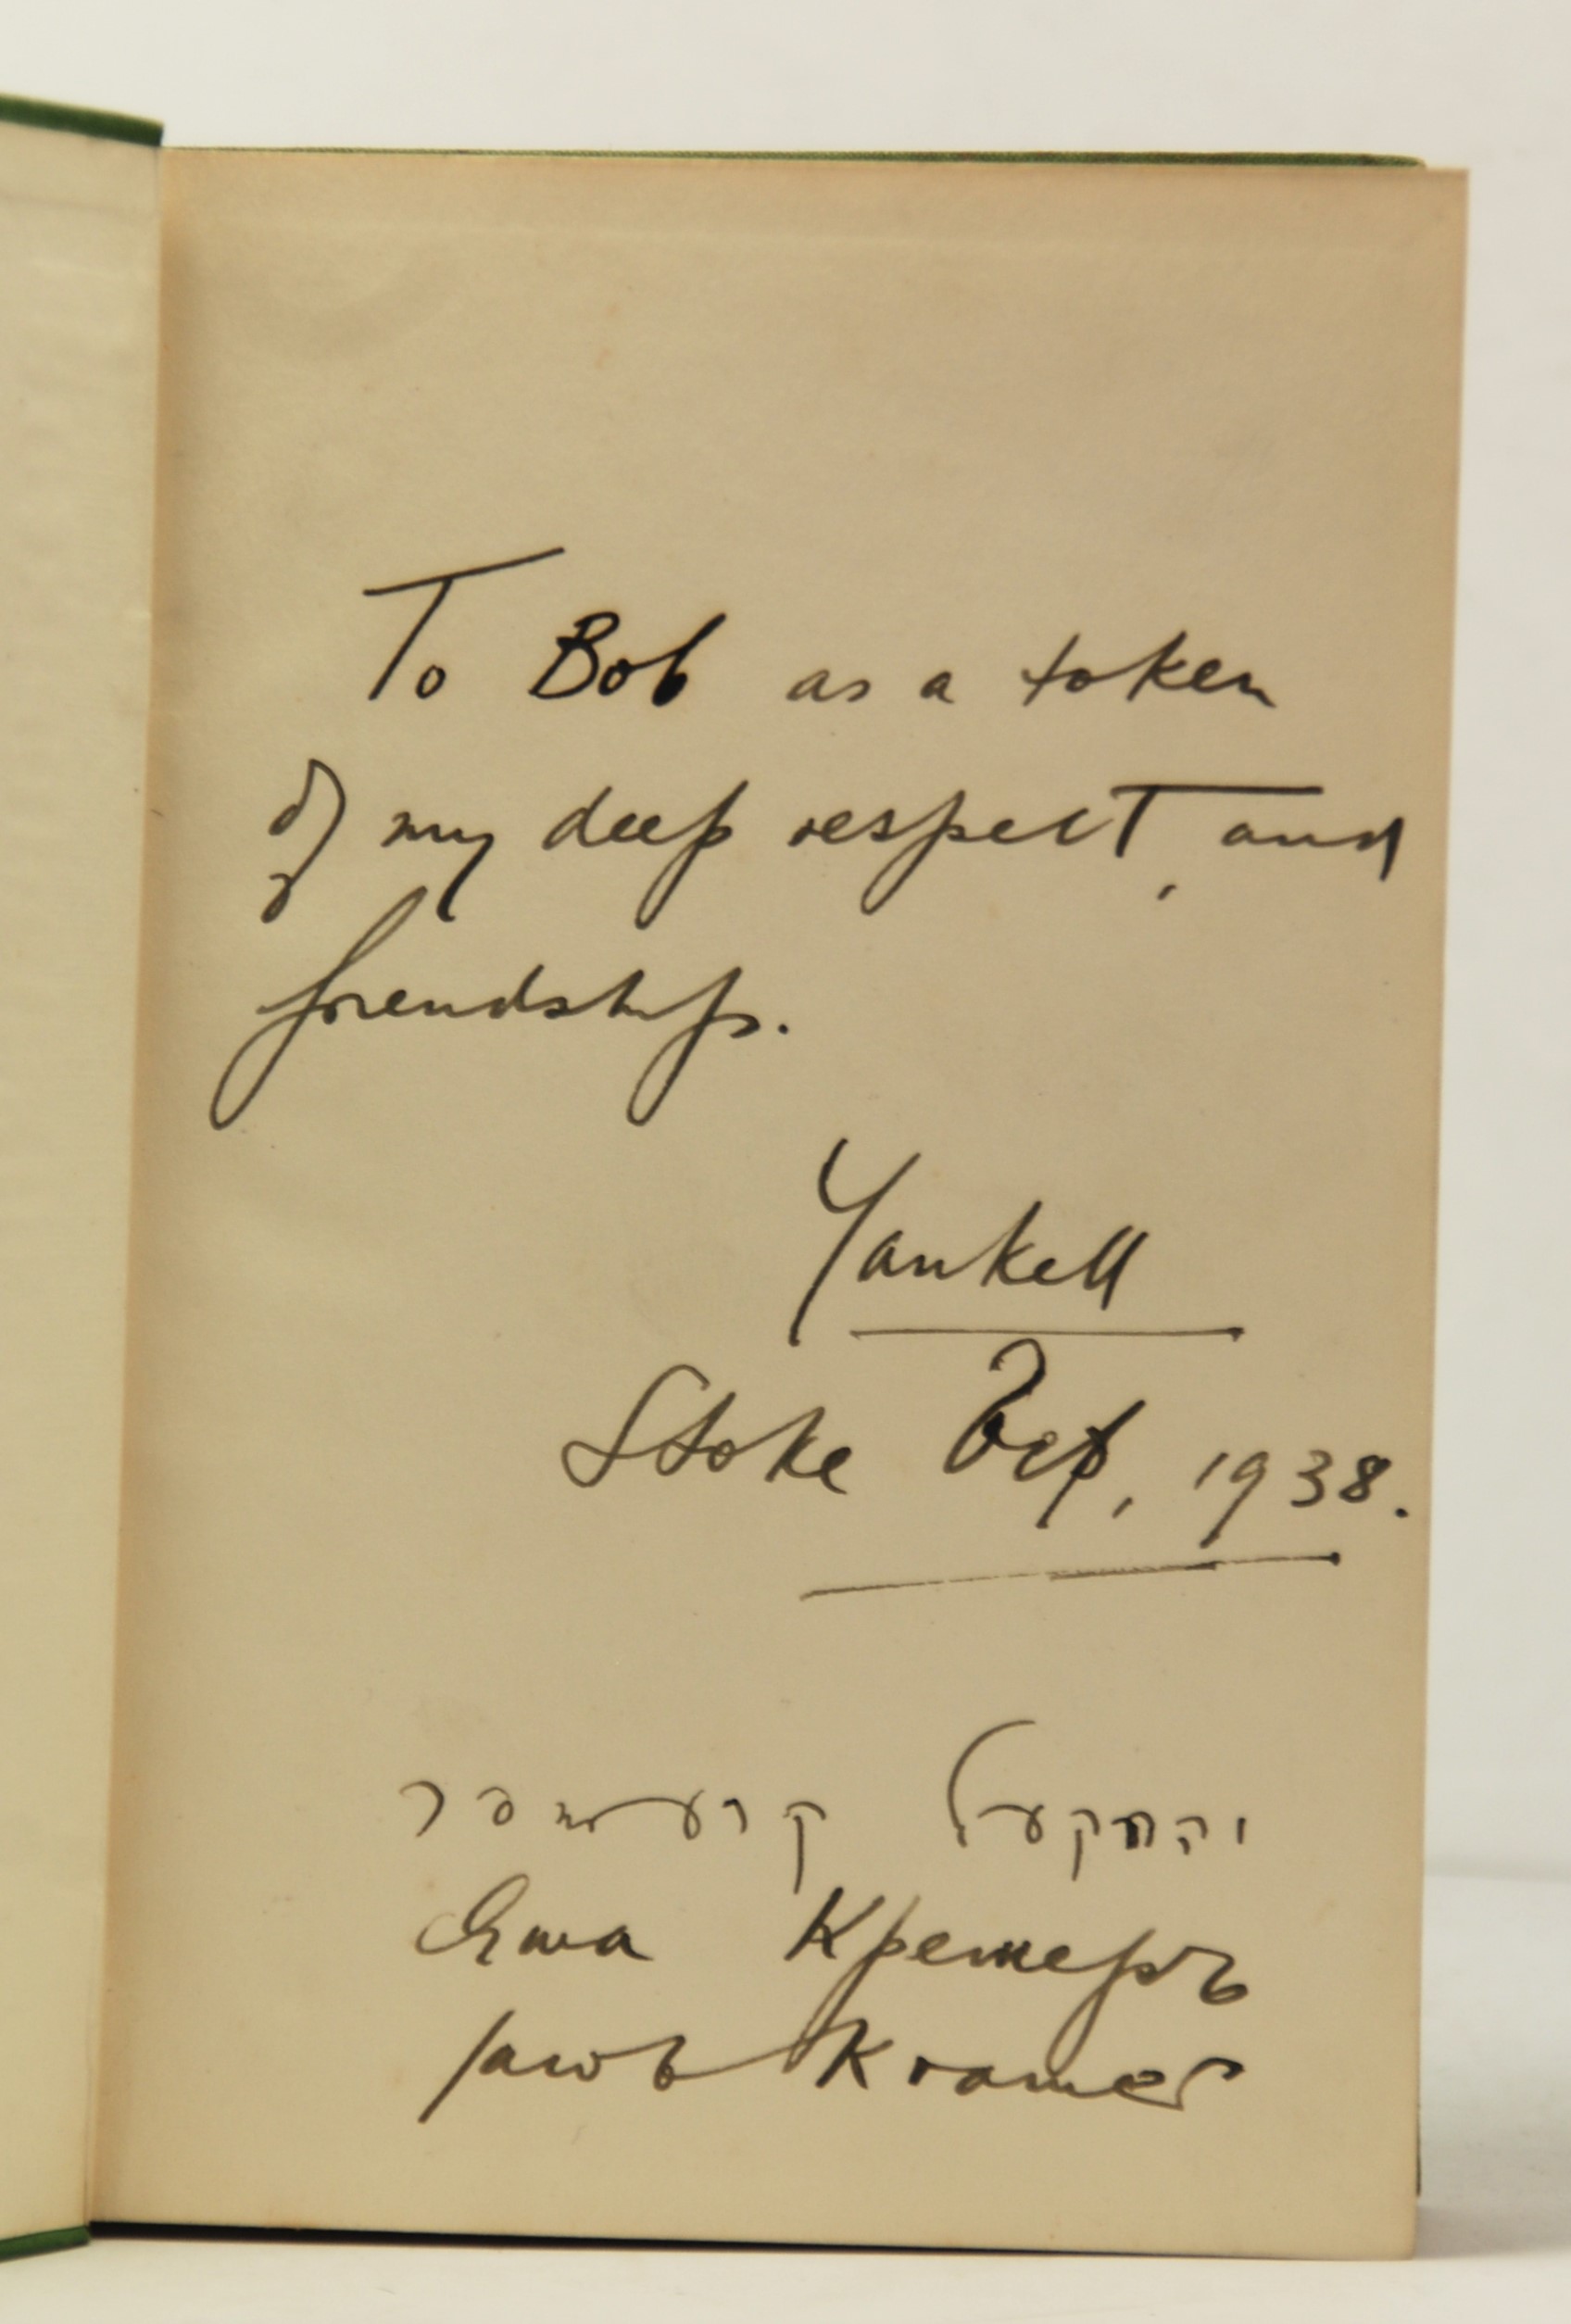 To Bob as a token
of my deep respect, and
friendship.
Yankell
Stoke Oct, 1938.
קרעמער
Яша Кремеръ
Jacob Kramer